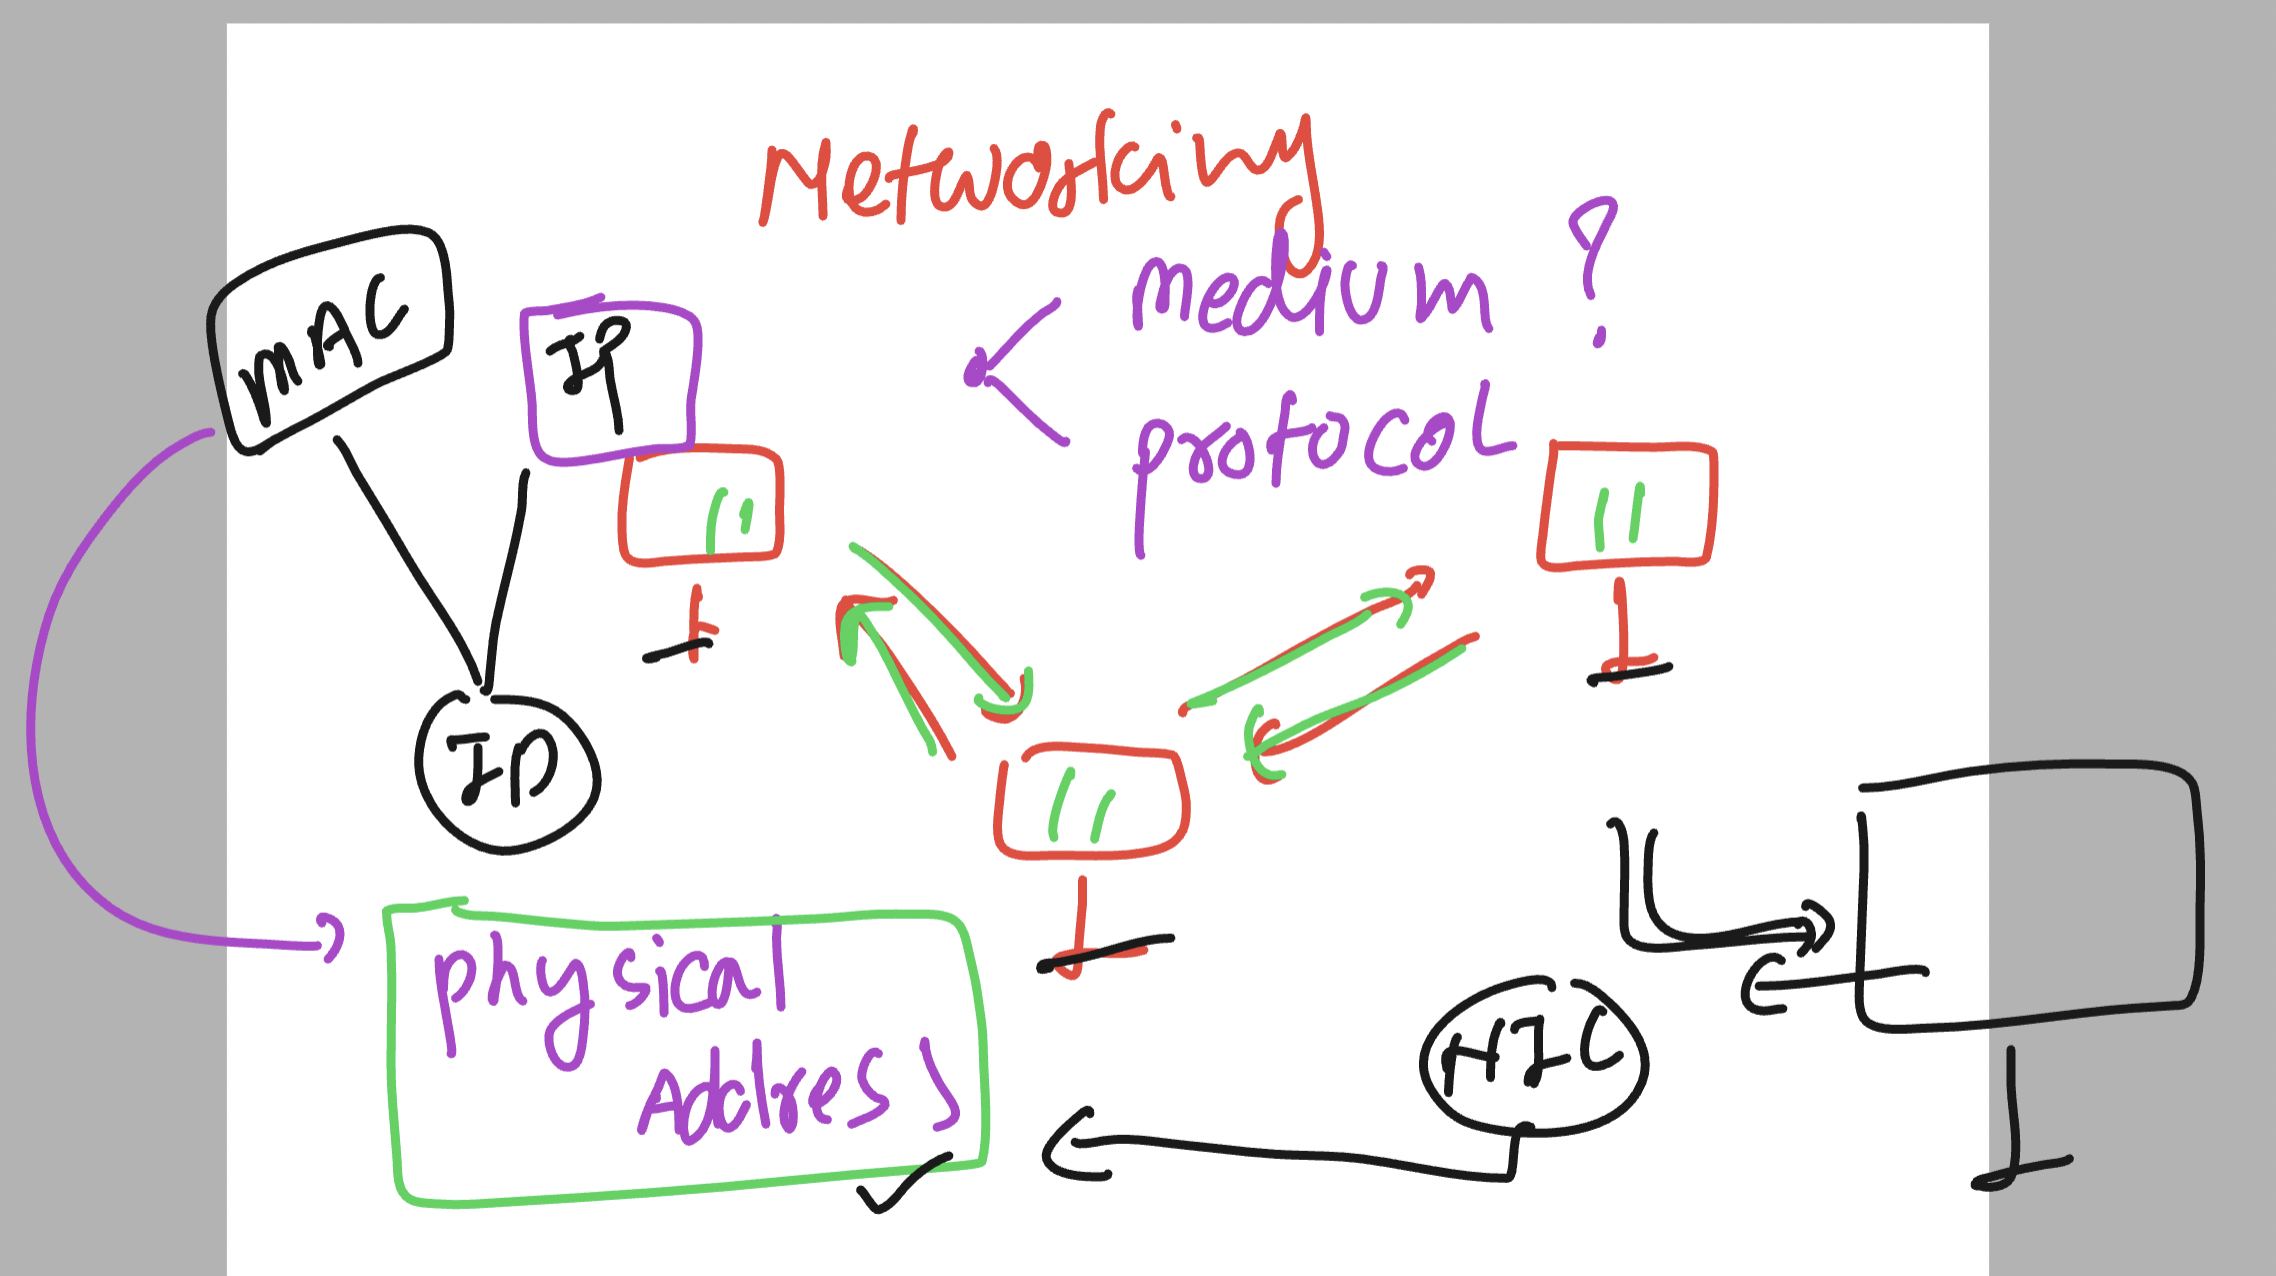 Networking
medium ?
protocol
MAC
IP
ID
physical
Address
NIC